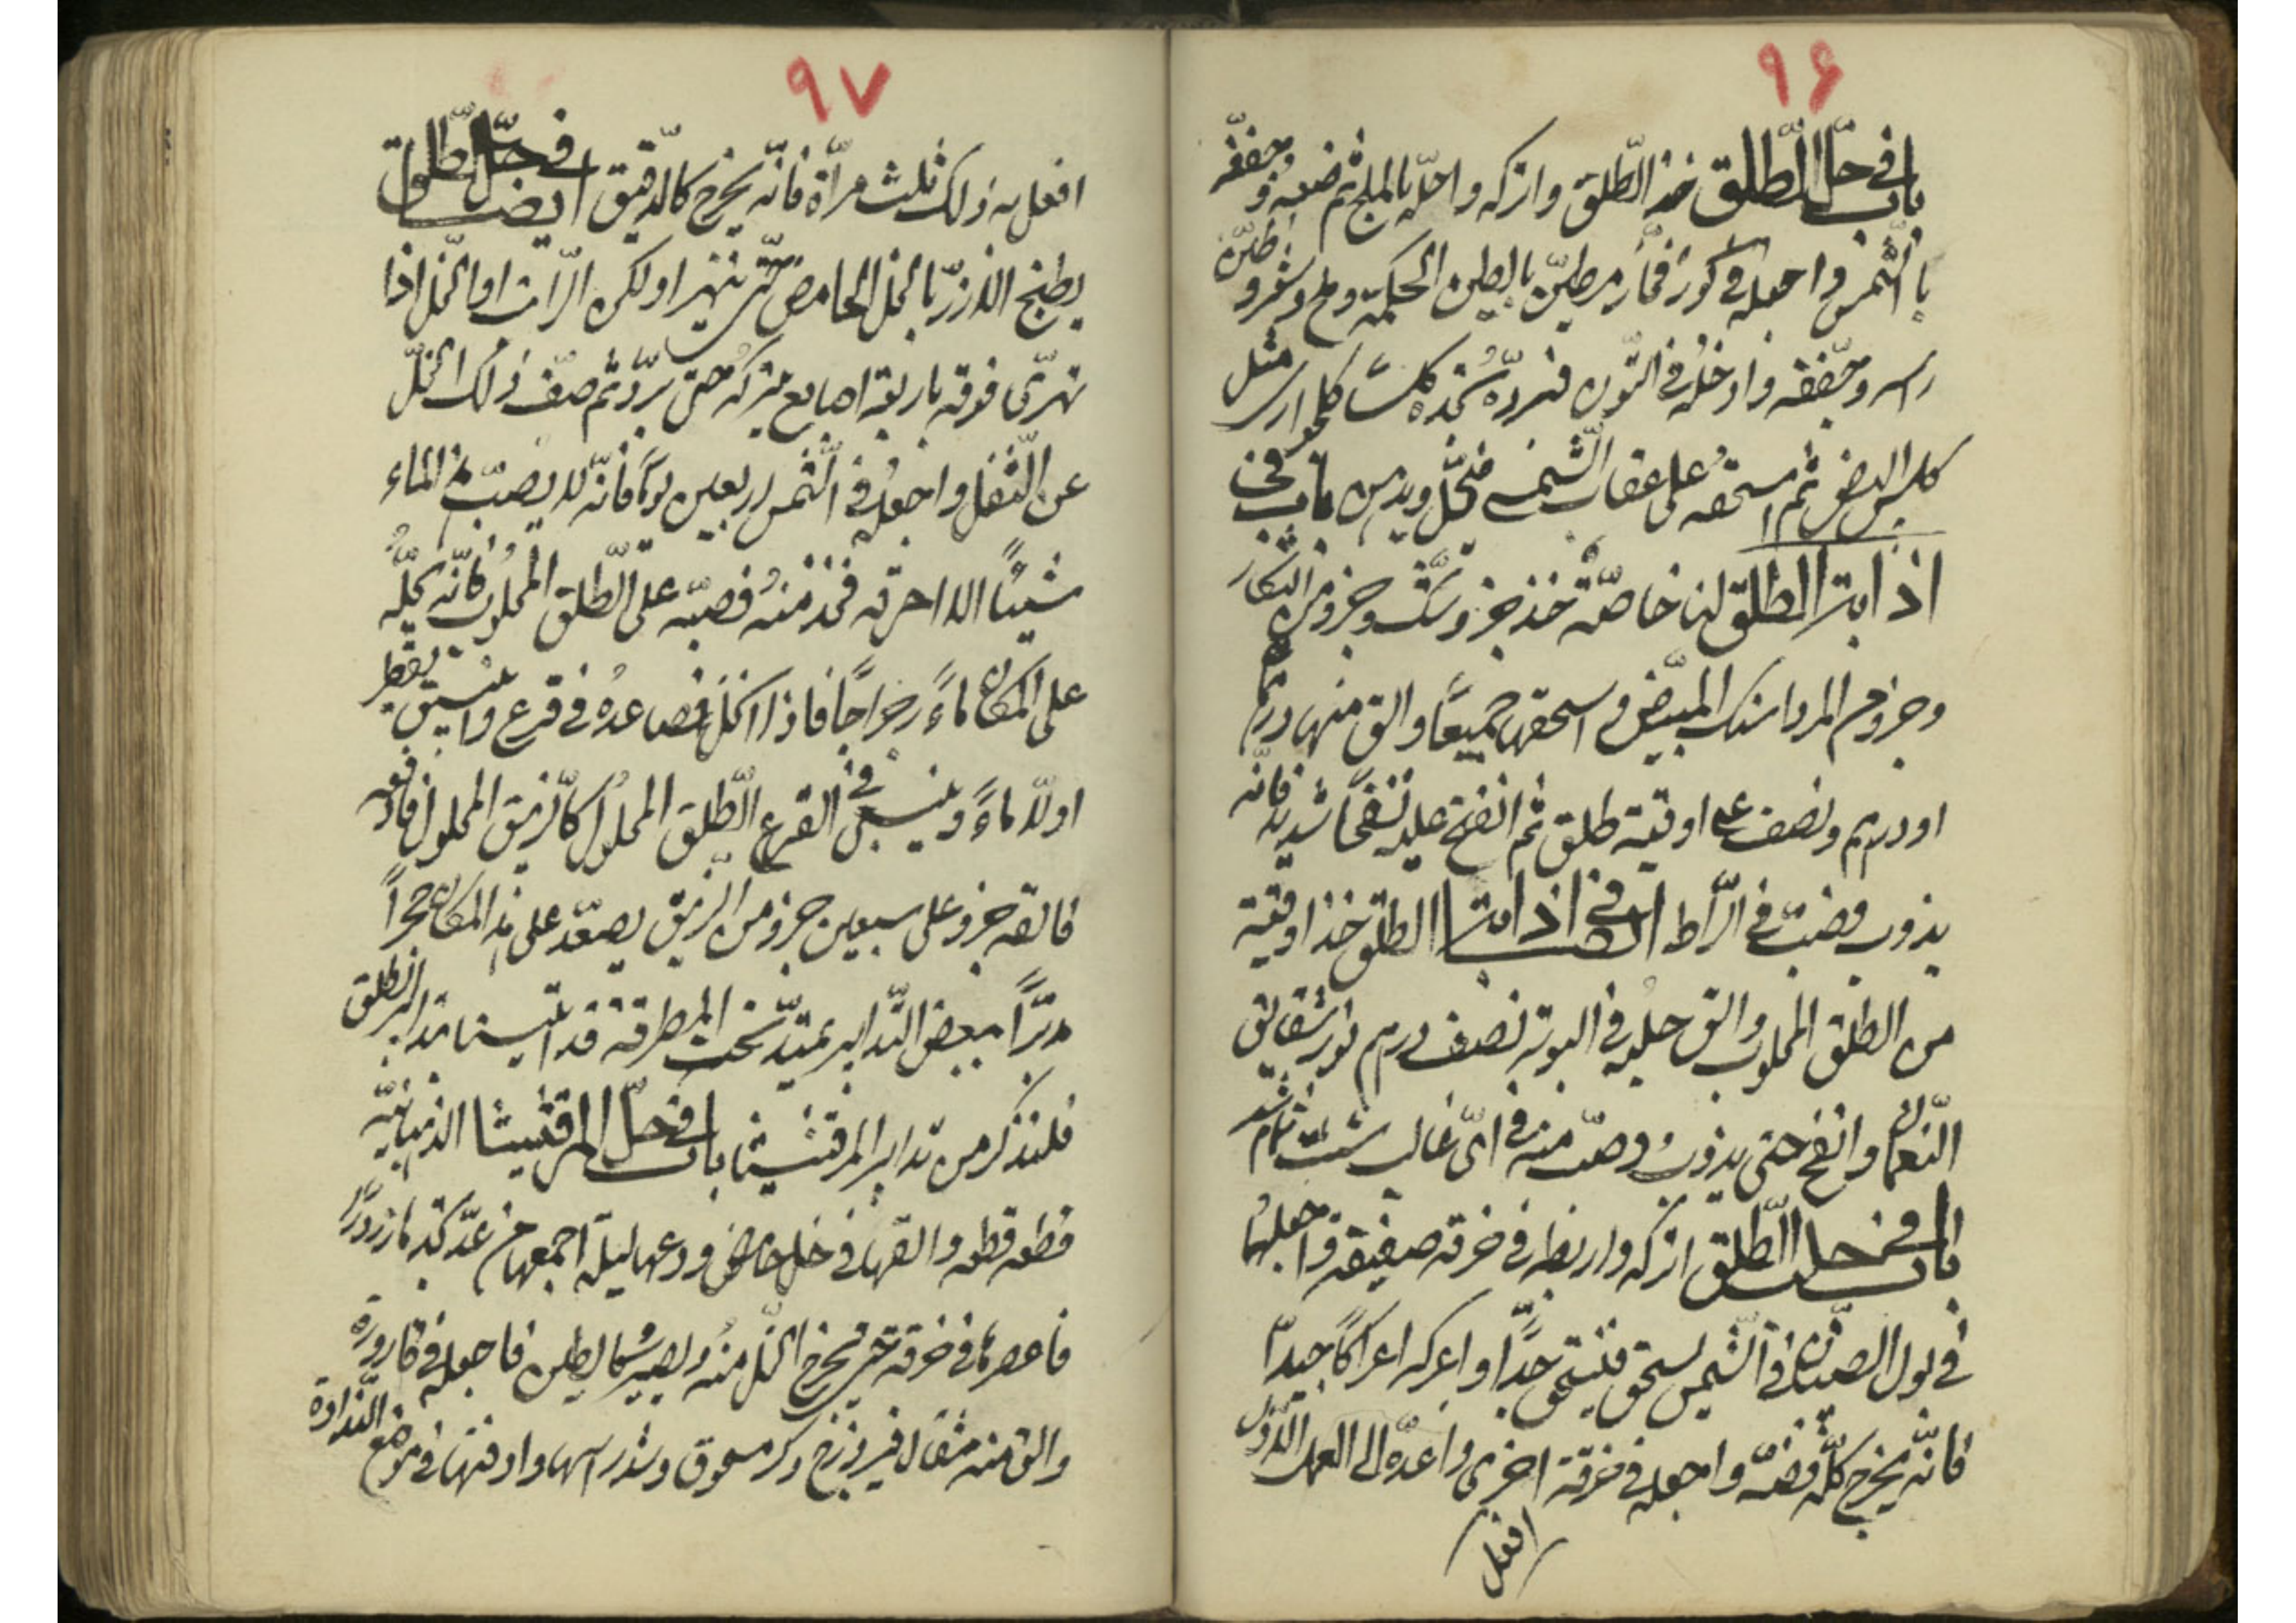 ۹۶
باب في حلّ الطّلق خذ الطّلق واتركه واحلّه بالملح ثم ضعه وجفّفه
بالشّمس واجعله في كوز فخّار مطيّن بالطين الحكمة وملح وشعر وطيّن
راسه وجفّفه وادخله في التّون فتردّه تجده كلسًا كلما ارس مثل
كلس البيض ثم اسحقه على عقاب الشّمسه فتحلّ ويدهن باب في
اذابة الطلق لنا خاصّة خذ جزو شكّ وجزو من التنكار
وجزو من المرداسنك المبيّض واسحقها جميعًا والق منها درهم
او درهم ونصف على اوقية طلق ثم انفخ عليه نفخًا شديد فانّه
يذوب وصبّ في الرّاط ايضا في اذابة الطلق خذ اوقية
من الطلق المحلوب والق حلبه في البوته نصف درهم نور شقائق
النّعمان وانفخ حتى يذوب وصبّ منه في ايّ غالب شئت
باب في حلب الطّلق اتركه واربطه في خرقه صفيقة واجعلها
في بول الصبيان في الشّمس لسحق فينسحق جدًّا واعركه اعراكًا جيدًا
فانّه يخرج كلّه فضّه واجعله في خرقة اخرى واعدّه الى العمل الاوّل
افعل
۹۷
افعل به ذلك ثلث مرآة فانّه يخرج كالدّقيق ايضا في حلّ الطلق
يطبخ الارزّ بالخل الحامض حتى يتهرا ولكن الرّات او الخل اذا
تهرّى فوقه باربعة اصابع يتركه حتى يبرد ثم صفّ ذلك الخلّ
عن الثّفل واجعله في الشّمس اربعين يومًا فانّه لا يصبّ من الماء
شيئًا الا احرقه فخذ منه فصبّه على الطّلق المحلوب فانّه يحلّه
على المكان ماءً رجراجًا فاذا انحل فصاعده في قرع وانبيق يقطر
اولا ماءً ويبقى في القرع الطّلق المحلول كالزّيبق المحلول فارفعه
فالقه جزو على سبعين جزو من الزيبق يصعّد على مد المكان حجرًا
مدبّرًا ببعض التّدابير يمتدّ تحت المطرقة قد اتينا بتدابير الطلق
فلنذكر من تدابير المرقشيثا باب في حلّ المرقشيثا الذهبانيّه
قطعه قطعه والقها في خل حامض ودعها ليلة اجمعها من غدّ تجد ما زوردًا
فاعصرها في خرقة حتى يخرج الخل منه ويصير كالطين فاجعله في قارورة
والق منه مثقال فيروزج ذكر مسحوق وشدّ راسها وادفنها في موضع النّداوة